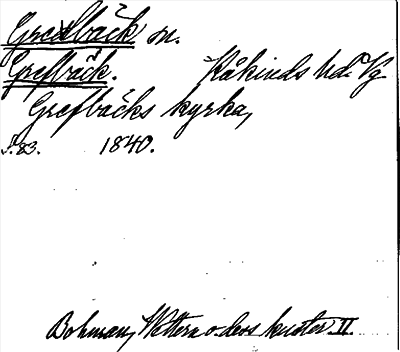 Gredbäck sn.
Grefbäck. Kåkinds hd. Vg.
Grefbäcks kyrka,
S. 83. 1840.
Bohman, Wettern o. dess kuster. II.